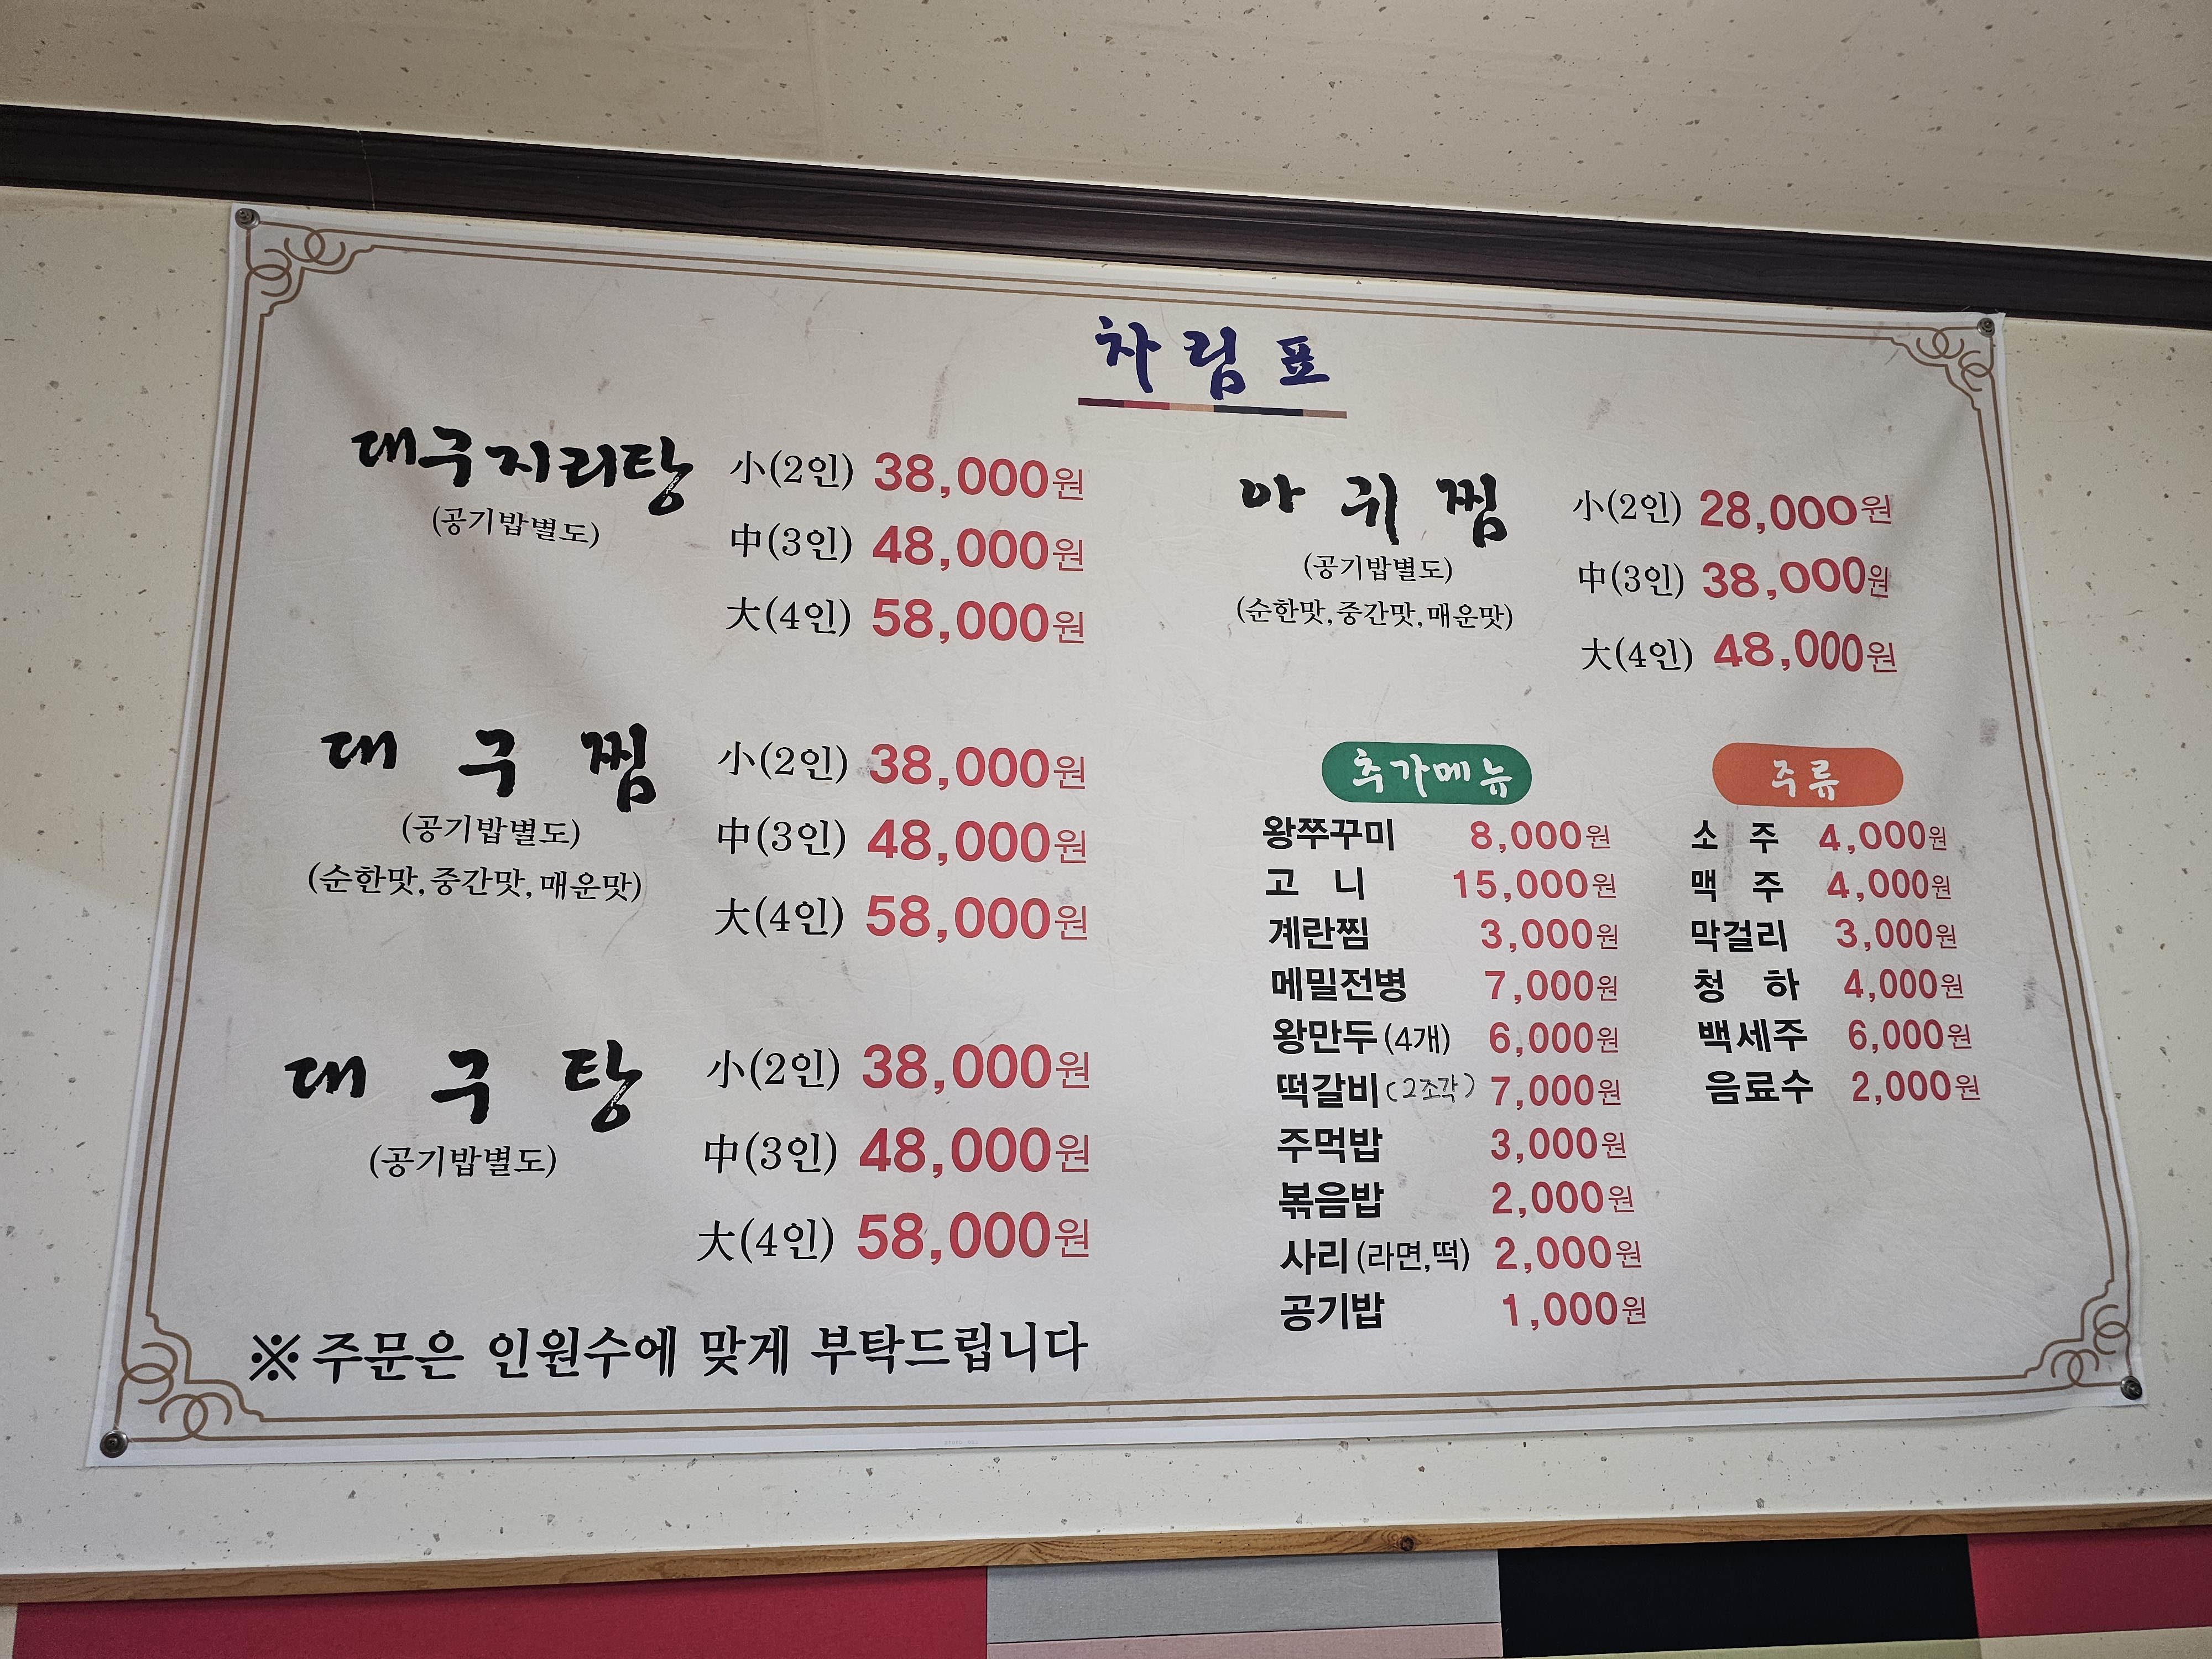 차림표
대구지리탕 小(2인) 38,000원
(공기밥별도) 中(3인) 48,000원
大(4인) 58,000원
대구찜 小(2인) 38,000원
(공기밥별도) 中(3인) 48,000원
(순한맛,중간맛,매운맛) 大(4인) 58,000원
대구탕 小(2인) 38,000원
(공기밥별도) 中(3인) 48,000원
大(4인) 58,000원
※주문은 인원수에 맞게 부탁드립니다
아귀찜 小(2인) 28,000원
(공기밥별도) 中(3인) 38,000원
(순한맛,중간맛,매운맛) 大(4인) 48,000원
추가메뉴
왕쭈꾸미 8,000원
고니 15,000원
계란찜 3,000원
메밀전병 7,000원
왕만두(4개) 6,000원
떡갈비(2조각) 7,000원
주먹밥 3,000원
볶음밥 2,000원
사리(라면,떡) 2,000원
공기밥 1,000원
주류
소주 4,000원
맥주 4,000원
막걸리 3,000원
청하 4,000원
백세주 6,000원
음료수 2,000원